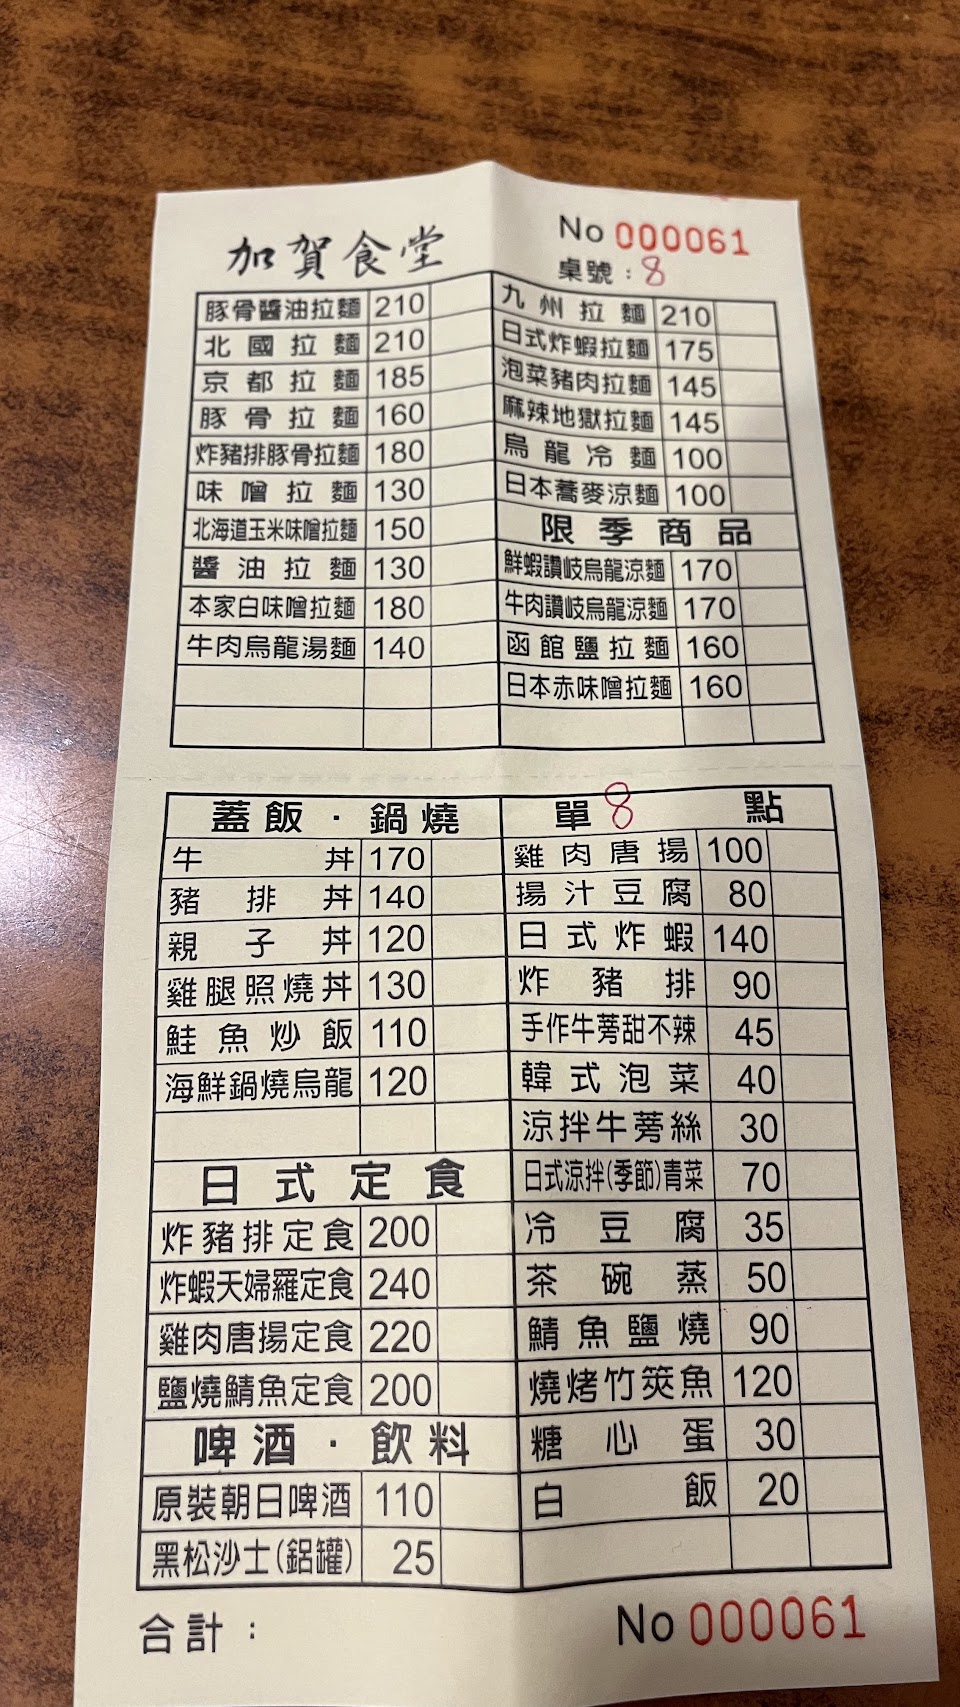 加賀食堂
No 000061
桌號：8
豚骨醬油拉麵 210
北國拉麵 210
京都拉麵 185
豚骨拉麵 160
炸豬排豚骨拉麵 180
味噌拉麵 130
北海道玉米味噌拉麵 150
醬油拉麵 130
本家白味噌拉麵 180
牛肉烏龍湯麵 140
九州拉麵 210
日式炸蝦拉麵 175
泡菜豬肉拉麵 145
麻辣地獄拉麵 145
烏龍冷麵 100
日本蕎麥涼麵 100
限季商品
鮮蝦讚岐烏龍涼麵 170
牛肉讚岐烏龍涼麵 170
函館鹽拉麵 160
日本赤味噌拉麵 160
蓋飯·鍋燒
牛丼 170
豬排丼 140
親子丼 120
雞腿照燒丼 130
鮭魚炒飯 110
海鮮鍋燒烏龍 120
日式定食
炸豬排定食 200
炸蝦天婦羅定食 240
雞肉唐揚定食 220
鹽燒鯖魚定食 200
啤酒·飲料
原裝朝日啤酒 110
黑松沙士(鋁罐) 25
單8點
雞肉唐揚 100
揚汁豆腐 80
日式炸蝦 140
炸豬排 90
手作牛蒡甜不辣 45
韓式泡菜 40
涼拌牛蒡絲 30
日式涼拌(季節)青菜 70
冷豆腐 35
茶碗蒸 50
鯖魚鹽燒 90
燒烤竹筴魚 120
糖心蛋 30
白飯 20
合計：
No 000061